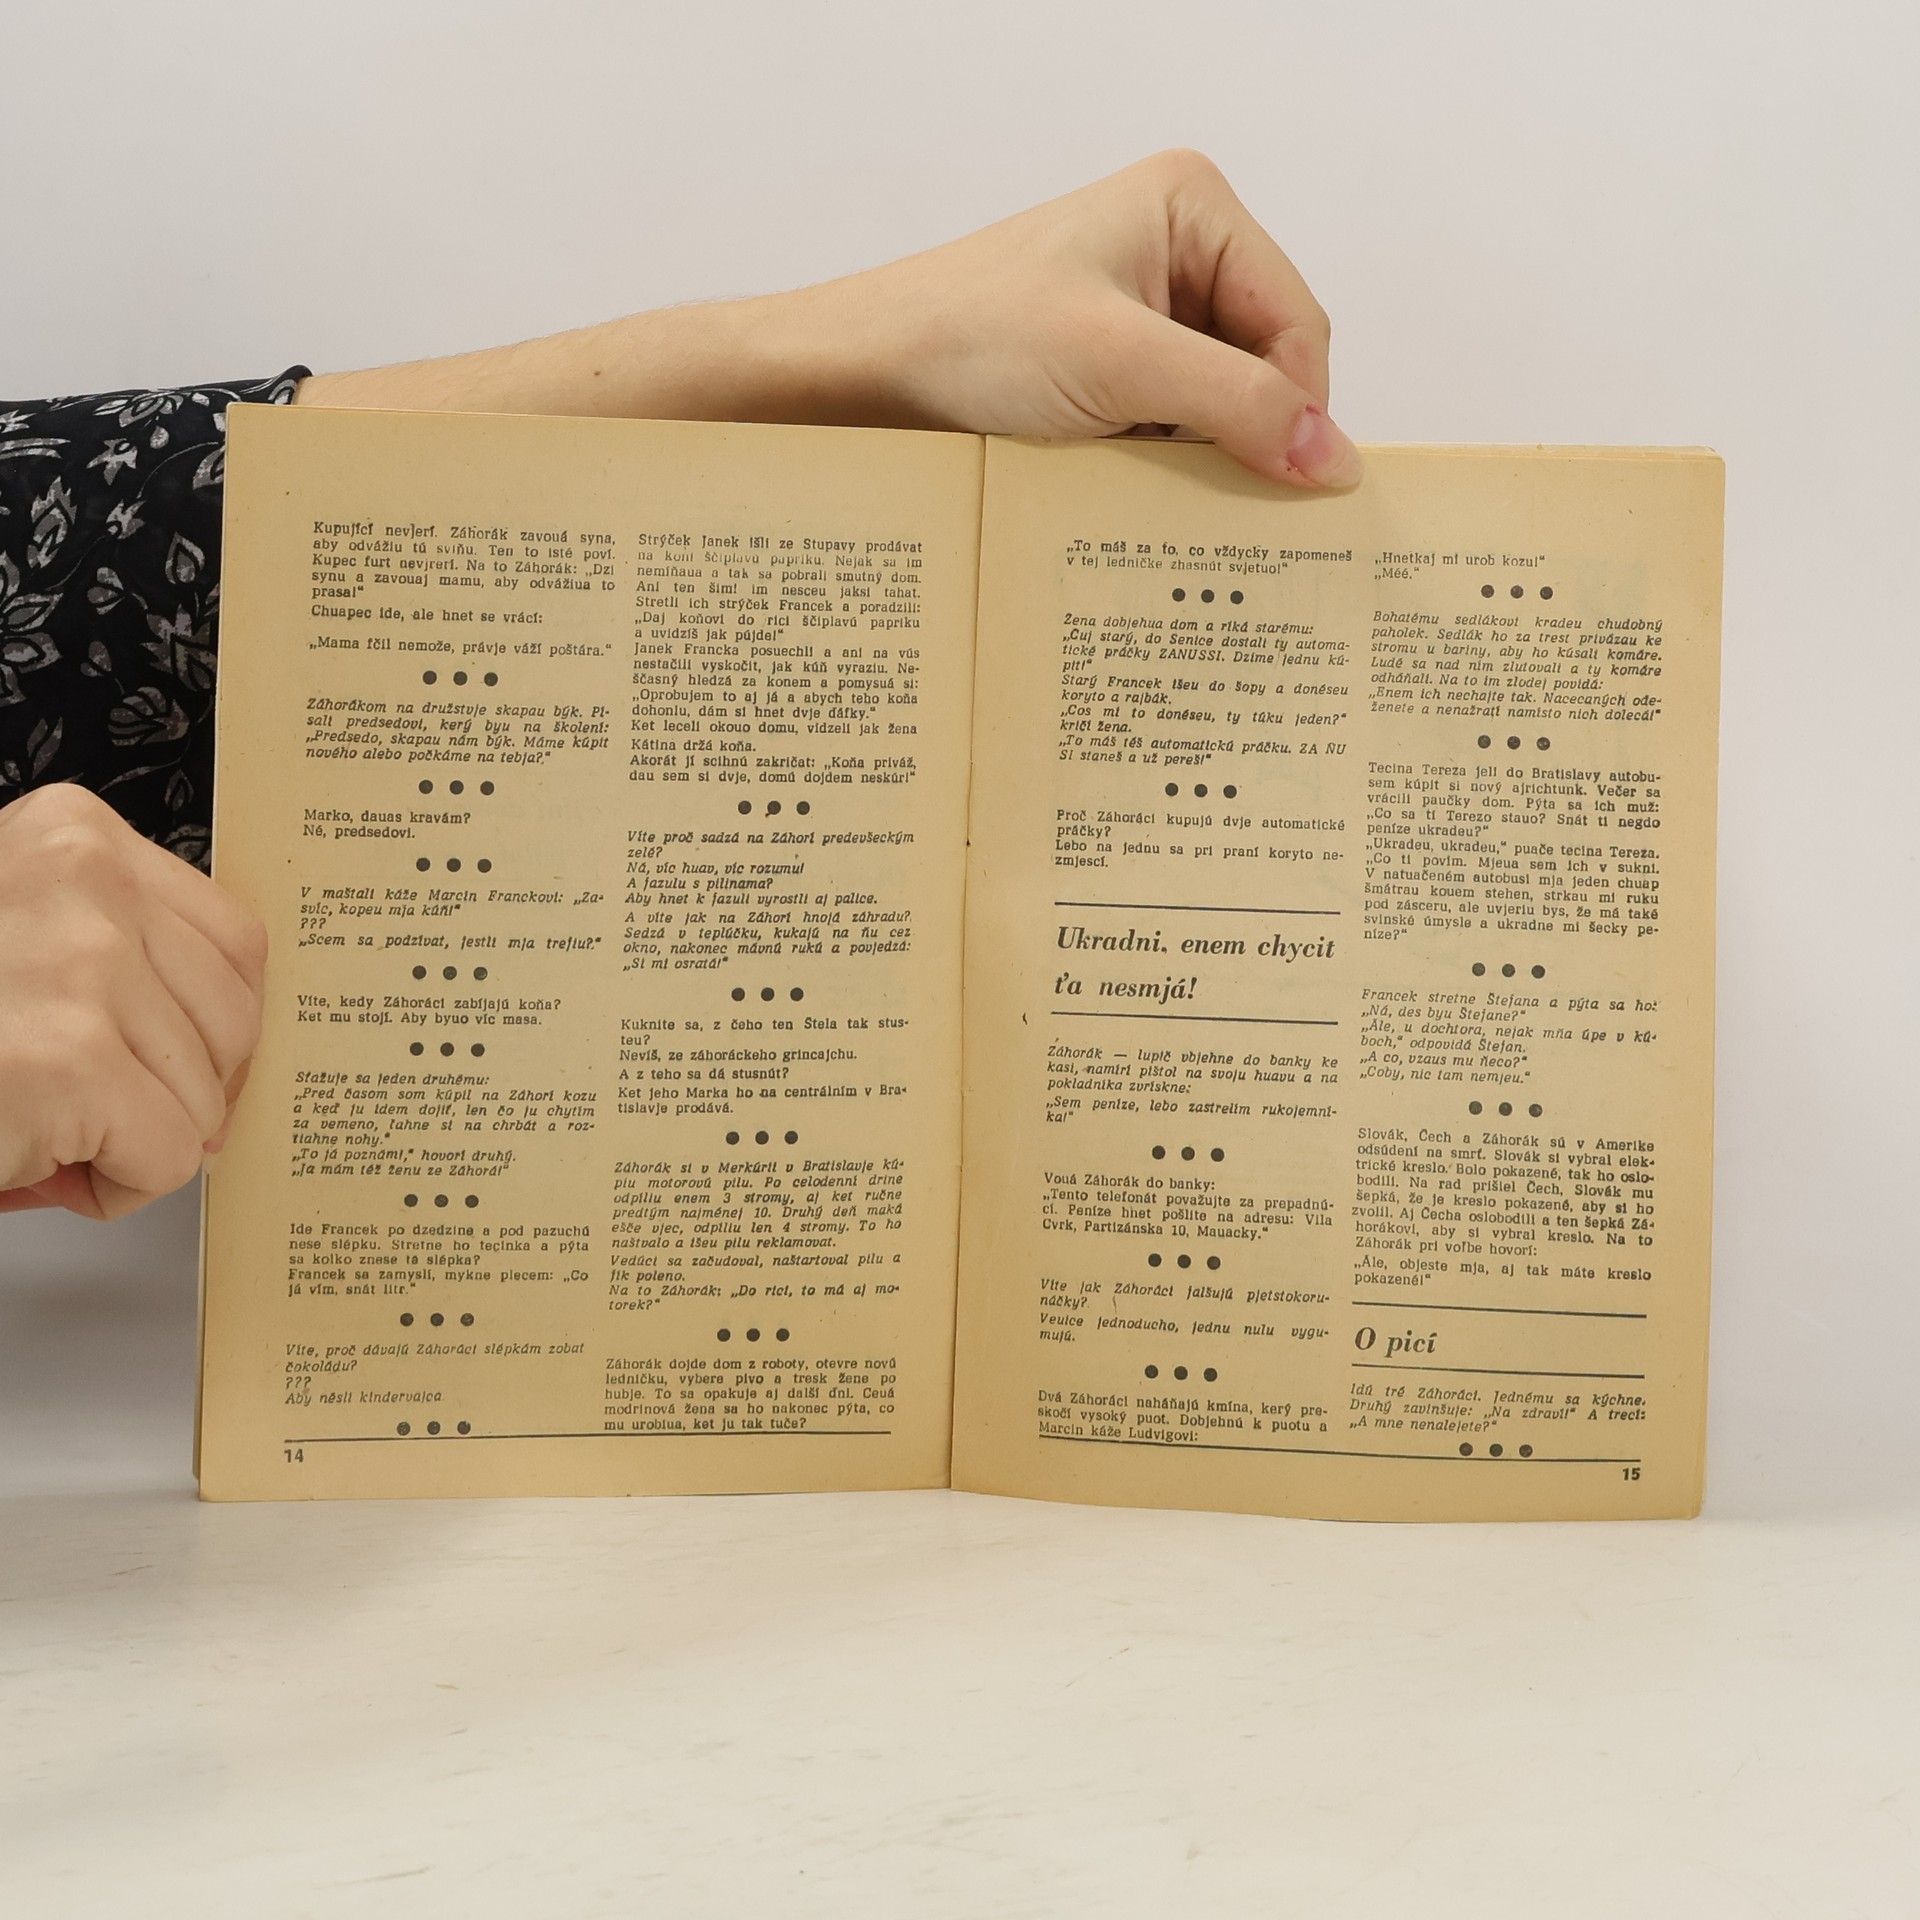 Kupující nevjerí. Záhorák zavouá syna,
aby odvážiu tú sviňu. Ten to isté poví.
Kupec furt nevjrerí. Na to Záhorák: „Dzi
synu a zavouaj mamu, aby odvážiua to
prasa!"
Chuapec ide, ale hnet se vrácí:
„Mama fčil nemože, právje váží poštára."
● ● ●
Záhorákom na družstvje skapau býk. Pí-
sali predsedovi, kerý byu na školení:
„Predsedo, skapau nám býk. Máme kúpit
nového alebo počkáme na tebja?"
● ● ●
Marko, dauas kravám?
Né, predsedovi.
● ● ●
V maštali káže Marcin Franckovi: „Za-
svíc, kopeu mja kúň!"
???
„Scem sa podzívat, jestli mja trefiu?"
● ● ●
Víte, kedy Záhoráci zabíjajú koňa?
Ket mu stojí. Aby byuo víc masa.
● ● ●
Sťažuje sa jeden druhému:
„Pred časom som kúpil na Záhorí kozu
a keď ju idem dojiť, len čo ju chytím
za vemeno, ľahne si na chrbát a roz-
tiahne nohy."
„To já poznám!," hovorí druhý.
„Ja mám též ženu ze Záhorá!"
● ● ●
Ide Francek po dzedzine a pod pazuchú
nese slépku. Stretne ho tecinka a pýta
sa kolko znese tá slépka?
Francek sa zamyslí, mykne plecem: „Co
já vím, snát litr."
● ● ●
Víte, proč dávajú Záhoráci slépkám zobat
čokoládu?
???
Aby nésli kindervajca.
● ● ●
14
Strýček Janek išli ze Stupavy prodávat
na koni ščiplavú papriku. Nejak sa im
nemíňaua a tak sa pobrali smutný dom.
Ani ten šiml im nesceu jaksi tahat.
Stretli ich strýček Francek a poradzili:
„Daj koňovi do rici ščiplavú papriku
a uvidzíš jak pújde!"
Janek Francka posuechli a ani na vús
nestačili vyskočit, jak kúň vyraziu. Ne-
ščasný hledzá za konem a pomysuá si:
„Oprobujem to aj já a abych teho koňa
dohoniu, dám si hnet dvje ďáfky."
Ket leceli okouo domu, vidzeli jak žena
Kátina držá koňa.
Akorát jí scihnú zakričat: „Koňa priváž,
dau sem si dvje, domú dojdem neskúr!"
● ● ●
Víte proč sadzá na Záhorí predevšeckým
zelé?
Ná, víc huav, víc rozumu!
A fazulu s pilinama?
Aby hnet k fazuli vyrostli aj palice.
A víte jak na Záhorí hnojá záhradu?
Sedzá v teplúčku, kukajú na ňu cez
okno, nakonec mávnú rukú a povjedzá:
„Si mi osratá!"
● ● ●
Kuknite sa, z čeho ten Štela tak stus-
teu?
Nevíš, ze záhoráckeho grincajchu.
A z teho sa dá stusnút?
Ket jeho Marka ho na centrálním v Bra-
tislavje prodává.
● ● ●
Záhorák si v Merkúrii v Bratislavje kú-
piu motorovú pílu. Po celodenní drine
odpíliu enem 3 stromy, aj ket ručne
predtým najméněj 10. Druhý deň maká
ešče vjec, odpíliu len 4 stromy. To ho
naštvalo a išeu pílu reklamovat.
Vedúci sa začudoval, naštartoval pílu a
fik poleno.
Na to Záhorák: „Do rici, to má aj mo-
torek?"
● ● ●
Záhorák dojde dom z roboty, otevre novú
ledničku, vybere pivo a tresk žene po
hubje. To sa opakuje aj další dni. Ceuá
modrinová žena sa ho nakonec pýta, co
mu urobiua, ket ju tak tuče?
„To máš za to, co vždycky zapomeneš
v tej ledničke zhasnút svjetuo!"
● ● ●
Žena dobjehua dom a ríká starému:
„Čuj starý, do Senice dostali ty automa-
tické práčky ZANUSSI. Dzime jednu kú-
pit!"
Starý Francek išeu do šopy a donéseu
koryto a rajbák.
„Cos mi to donéseu, ty túku jeden?"
kričí žena.
„To máš téš automatickú práčku. ZA ŇU
SI staneš a už pereš!"
● ● ●
Proč Záhoráci kupujú dvje automatické
práčky?
Lebo na jednu sa pri praní koryto ne-
zmjescí.
Ukradni, enem chycit
ťa nesmjá!
Záhorák — lupič vbjehne do banky ke
kasi, namíri pištol na svoju huavu a na
pokladníka zvrískne:
„Sem peníze, lebo zastrelím rukojemní-
ka!"
● ● ●
Vouá Záhorák do banky:
„Tento telefonát považujte za prepadnú-
cí. Peníze hnet pošlite na adresu: Vila
Cvrk, Partizánska 10, Mauacky."
● ● ●
Víte jak Záhoráci falšujú pjetstokoru-
náčky?
Veuice jednoducho, jednu nulu vygu-
mujú.
● ● ●
Dvá Záhoráci naháňajú kmína, kerý pre-
skočí vysoký puot. Dobjehnú k puotu a
Marcin káže Ludvigovi:
„Hnetkaj mi urob kozu!"
„Méé."
● ● ●
Bohatému sedlákovi kradeu chudobný
paholek. Sedlák ho za trest privázau ke
stromu u bariny, aby ho kúsali komáre.
Ludé sa nad ním zlutovali a ty komáre
odháňali. Na to im zlodej povidá:
„Enem ich nechajte tak. Nacecaných ode-
ženete a nenažratí namísto nich dolecá!"
● ● ●
Tecina Tereza jeli do Bratislavy autobu-
sem kúpit si nový ajrichtunk. Večer sa
vrácili paučky dom. Pýta sa ich muž:
„Co sa ti Terezo stauo? Snát ti negdo
peníze ukradeu?"
„Ukradeu, ukradeu," puače tecina Tereza.
„Co ti povím. Mjeua sem ich v sukni.
V natuačeném autobusi mja jeden chuap
šmátrau kouem stehen, strkau mi ruku
pod zásceru, ale uvjeriu bys, že má také
svinské úmysle a ukradne mi šecky pe-
níze?"
● ● ●
Francek stretne Štefana a pýta sa ho:
„Ná, des byu Štefane?"
„Ále, u dochtora, nejak mňa úpe v kú-
boch," odpovídá Štefan.
„A co, vzaus mu ňeco?"
„Coby, nic tam nemjeu."
● ● ●
Slovák, Čech a Záhorák sú v Amerike
odsúdení na smrť. Slovák si vybral elek-
trické kreslo. Bolo pokazené, tak ho oslo-
bodili. Na rad prišiel Čech, Slovák mu
šepká, že je kreslo pokazené, aby si ho
zvolil. Aj Čecha oslobodili a ten šepká Zá-
horákovi, aby si vybral kreslo. Na to
Záhorák pri voľbe hovorí:
„Ále, objeste mja, aj tak máte kreslo
pokazené!"
O picí
Idú tré Záhoráci. Jednému sa kýchne.
Druhý zavinšuje: „Na zdraví!" A trecí:
„A mne nenalejete?"
● ● ●
15